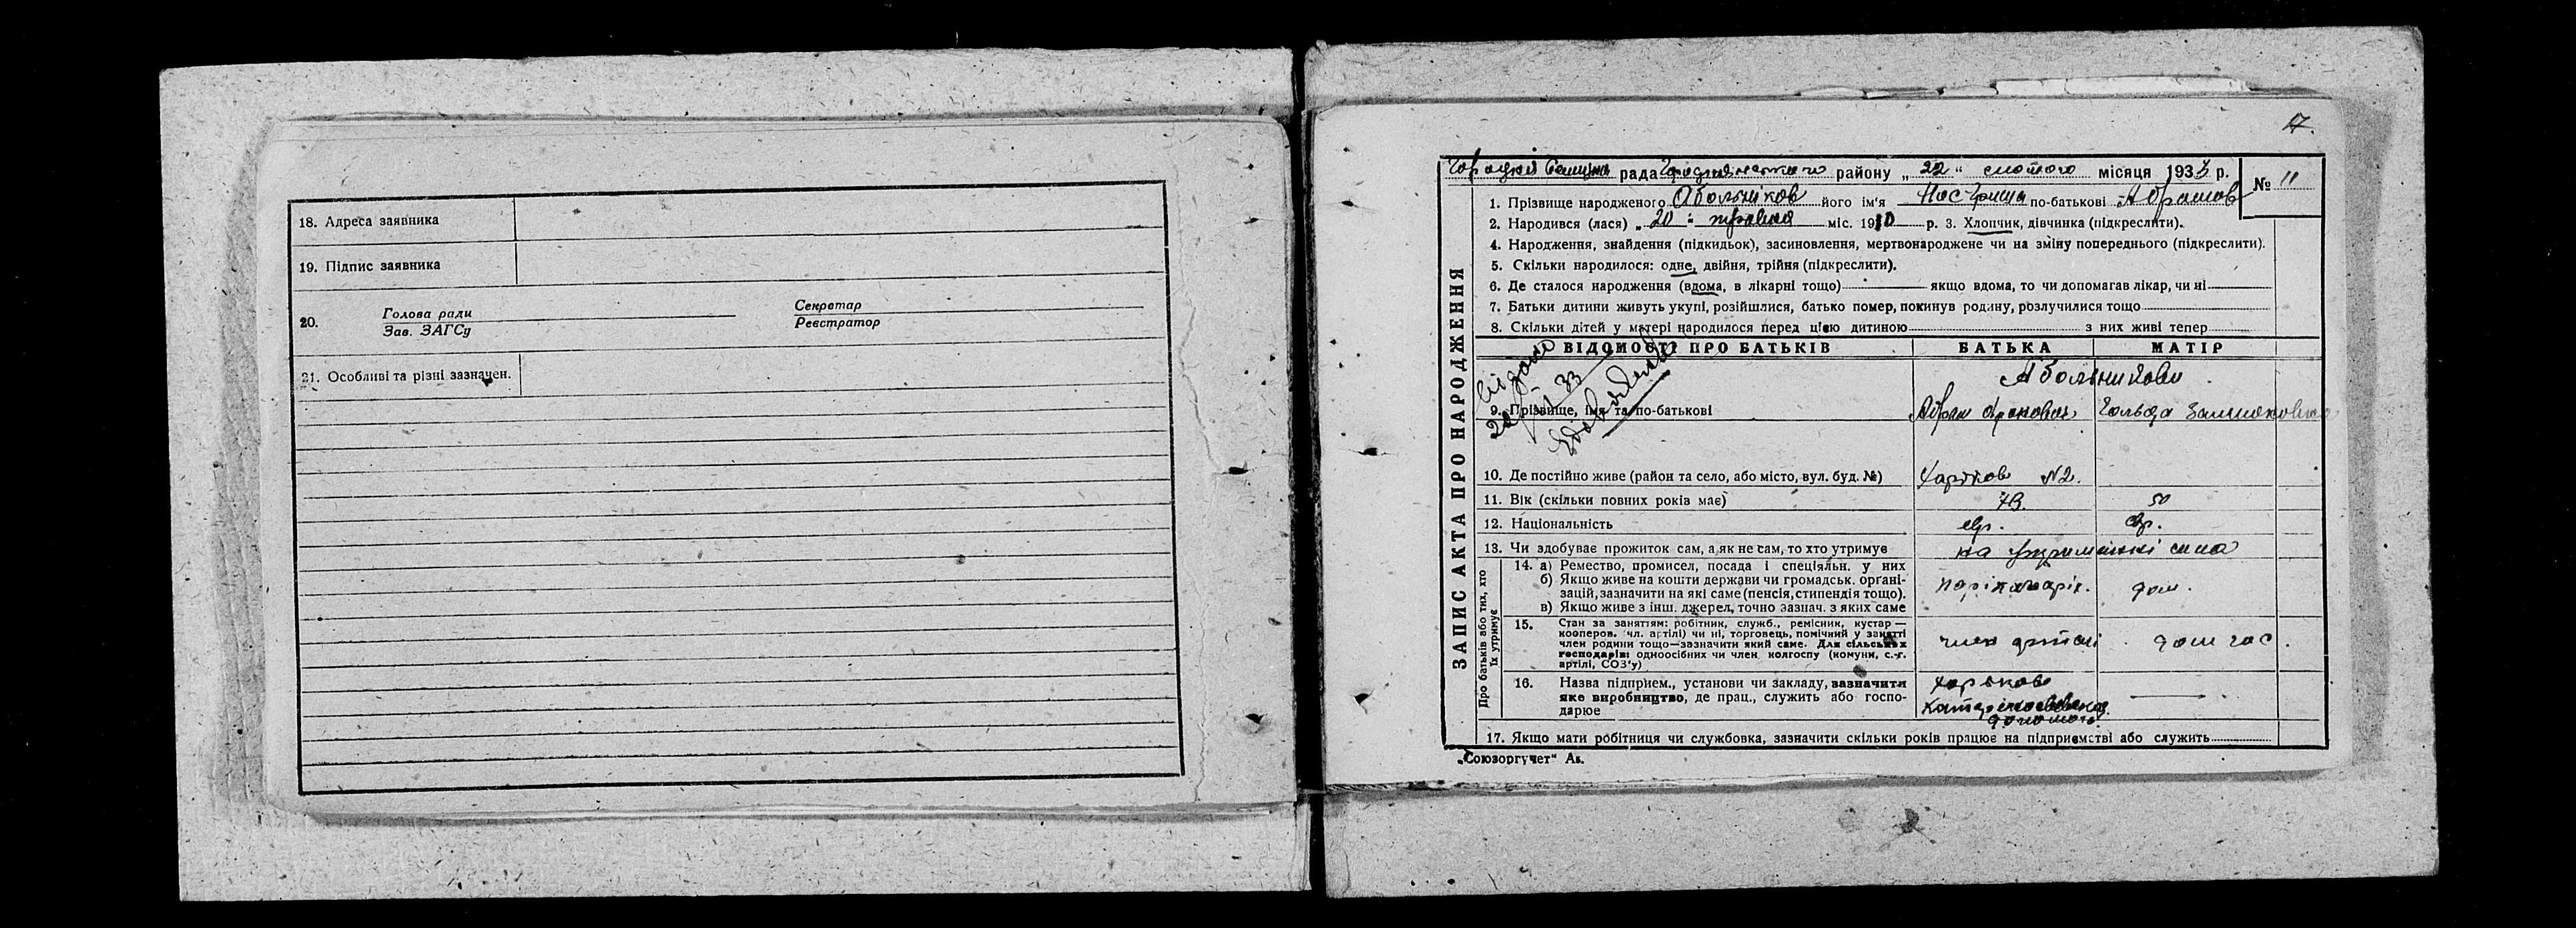 18. Адреса заявника
19. Підпис заявника
20. Голова ради
Зав. ЗАГСу
Секретар
Реєстратор
21. Особливі та різні зазначен.
17.
рада району „22“ лютого місяця 1933 р.
№ 11
1. Прізвище народженого Абольніков його ім'я по-батькові Абрамов
2. Народився (лася) „20“ травня міс. 1910 р. 3. Хлопчик, дівчинка (підкреслити).
4. Народження, знайдення (підкидьок), засиновлення, мертвонароджене чи на зміну попереднього (підкреслити).
5. Скільки народилося: одне, двійня, трійня (підкреслити).
6. Де сталося народження (вдома, в лікарні тощо) якщо вдома, то чи допомагав лікар, чи ні
7. Батьки дитини живуть укупі, розійшлися, батько помер, покинув родину, розлучилися тощо
8. Скільки дітей у матері народилося перед цією дитиною з них живі тепер
ЗАПИС АКТА ПРО НАРОДЖЕННЯ
ВІДОМОСТІ ПРО БАТЬКІВ БАТЬКА МАТІР
Абольникови
9. Прізвище, ім'я та по-батькові Абрам Гольда
10. Де постійно живе (район та село, або місто, вул. буд. №) Харков №2.
11. Вік (скільки повних років має) 73. 50
12. Національність євр. євр.
13. Чи здобуває прожиток сам, а як не сам, то хто утримує на утриманні сина
Про батьків або тих, хто їх утримує
14. а) Ремество, промисел, посада і спеціяльн. у них
б) Якщо живе на кошти держави чи громадськ. організацій, зазначити на які саме (пенсія, стипендія тощо).
в) Якщо живе з інш. джерел, точно зазнач. з яких саме
дом.
15. Стан за заняттям: робітник, служб., ремісник, кустар—
кооперов. (чл. артілі) чи ні, торговець, помічний у занятті
член родини тощо—зазначити який саме. Для сільських
господарів: одноосібних чи член колгоспу (комуни, с.-г.
артілі, СОЗ'у)
член артелі дом гос.
16. Назва підприєм., установи чи закладу, зазначити
яке виробництво, де прац., служить або госпо-
дарює
Харьков
17. Якщо мати робітниця чи службовка, зазначити скільки років працює на підприємстві або служить
„Союзоргучет“ Ак.